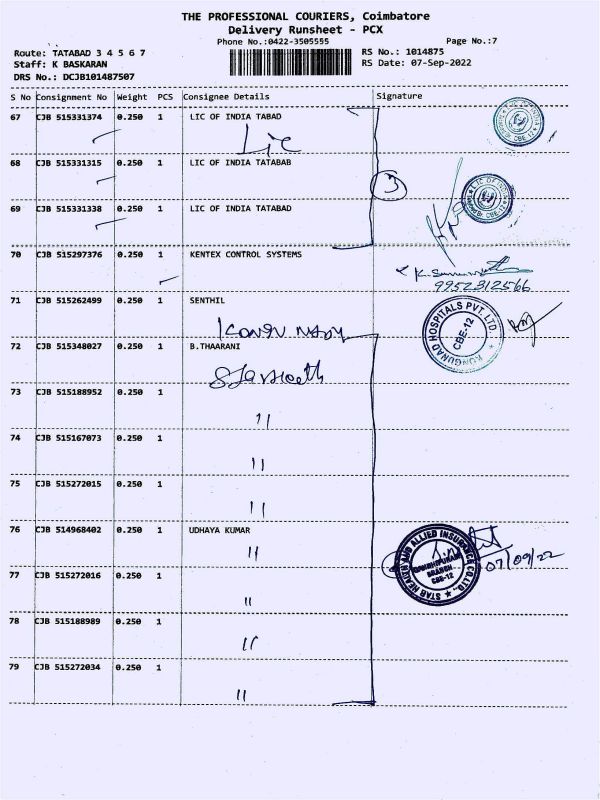 THE PROFESSIONAL COURIERS, Coimbatore
Delivery Runsheet - PCX
Phone No.:0422-3505555 Page No.:7
Route: TATABAD 3 4 5 6 7 RS No.: 1014875
Staff: K BASKARAN RS Date: 07-Sep-2022
DRS No.: DCJB101487507
S No Consignment No Weight PCS Consignee Details Signature
67 CJB 515331374 0.250 1 LIC OF INDIA TABAD
Lic
68 CJB 515331315 0.250 1 LIC OF INDIA TATABAB
3
69 CJB 515331338 0.250 1 LIC OF INDIA TATABAD
70 CJB 515297376 0.250 1 KENTEX CONTROL SYSTEMS
9952312566
71 CJB 515262499 0.250 1 SENTHIL
KONGUNAD HOSPITALS PVT. LTD.
CBE-12
72 CJB 515348027 0.250 1 B.THAARANI
73 CJB 515188952 0.250 1
"
74 CJB 515167073 0.250 1
"
75 CJB 515272015 0.250 1
"
76 CJB 514968402 0.250 1 UDHAYA KUMAR
"
STAR HEALTH AND ALLIED INSURANCE CO.LTD.
BRANCH
CBE-12
07/09/22
77 CJB 515272016 0.250 1
"
78 CJB 515188989 0.250 1
"
79 CJB 515272034 0.250 1
"